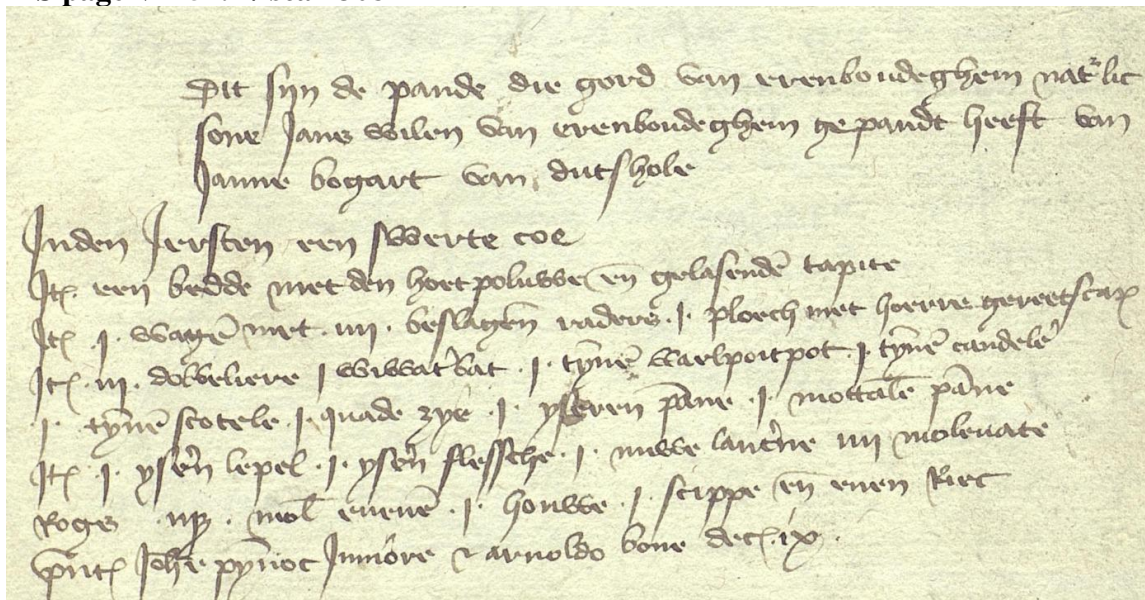 Dit sijn de pande die gord van erenboudeghem nat'lic
sone Jans wilen van erenboudeghem gepandt heeft van
Janne bogart van dutshole
Inden Jersten een swerte coe
Itē een bedde met den hoetpoluwe en̄ gelasendē tapite
Itē .j. wagē met .iiij. beslagen raders .j. ploech met hoerre gereetscap
Itē .iij. dobbeliere j wiwat'vat .j. tȳnē .j. tȳnē candele'
.j. tȳnē scotele .j. quade zye .j. yseren pāne .j. motalē pāne
Itē .j. yser'n lepel .j. yser'n flessche .j. nuwe lant'ne iiij molevate
Rogs mol' evenē .j. houwe .j. scippe en̄ enen Riec
p̄ntē Joh̄e pynoc Juniore & arnoldo bone decē. ix.